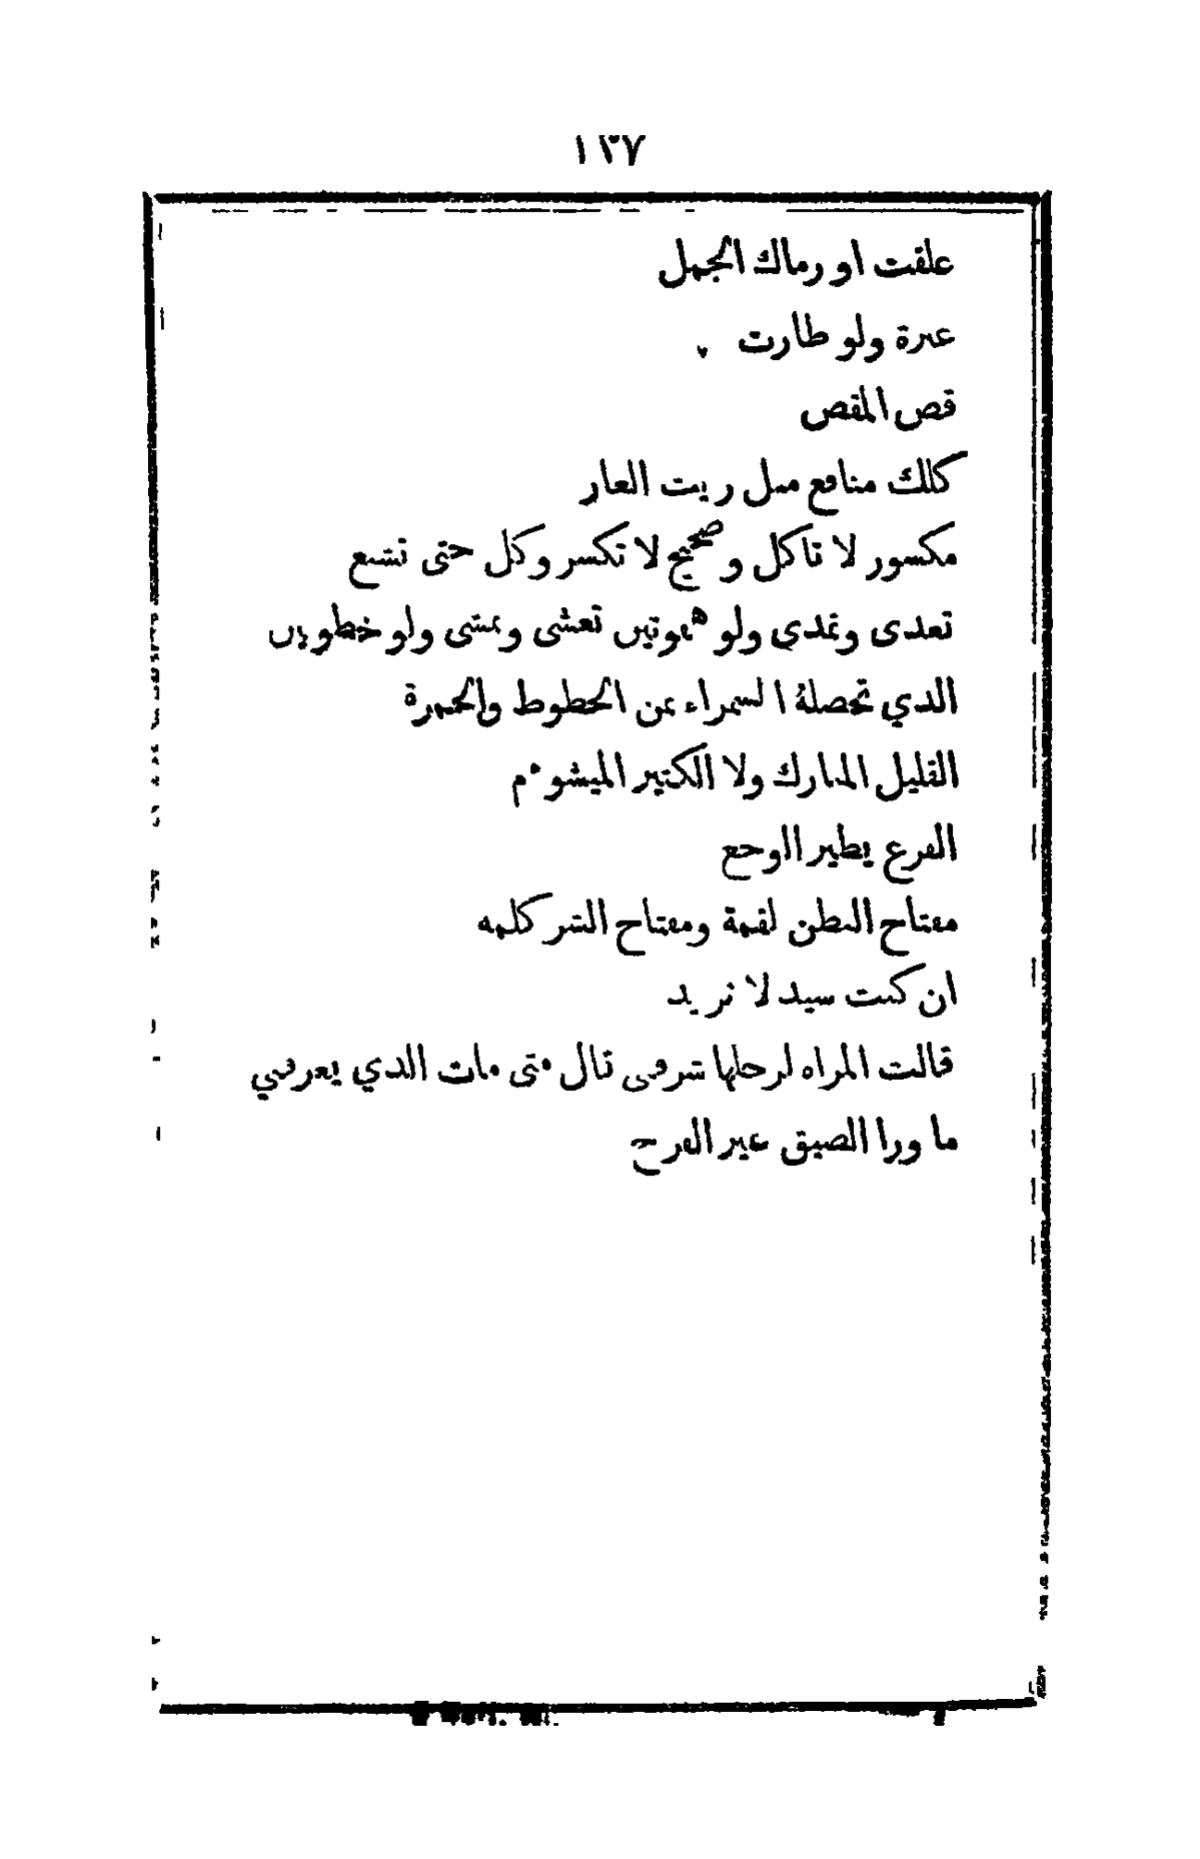 ١٣٧
علقت او رماك الجمل
عنزة ولو طارت
قص المقص
كلك منافع مثل زيت الغار
مكسور لا تاكل وصحيح لا تكسر وكل حتى تشبع
تغدى وتمدى ولو هوتين تعشى وتمشى ولو خطوتين
الذي تحصلهُ السمراء من الخطوط والحمرة
القليل المبارك ولا الكتير الميشوم
الفزع يطير الوجع
مفتاح البطن لقمة ومفتاح الشر كلمه
ان كنت سيد لا تريد
قالت المراه لرجلها شرفني قال متى مات الذي يعرفني
ما ورا الضيق غير الفرج